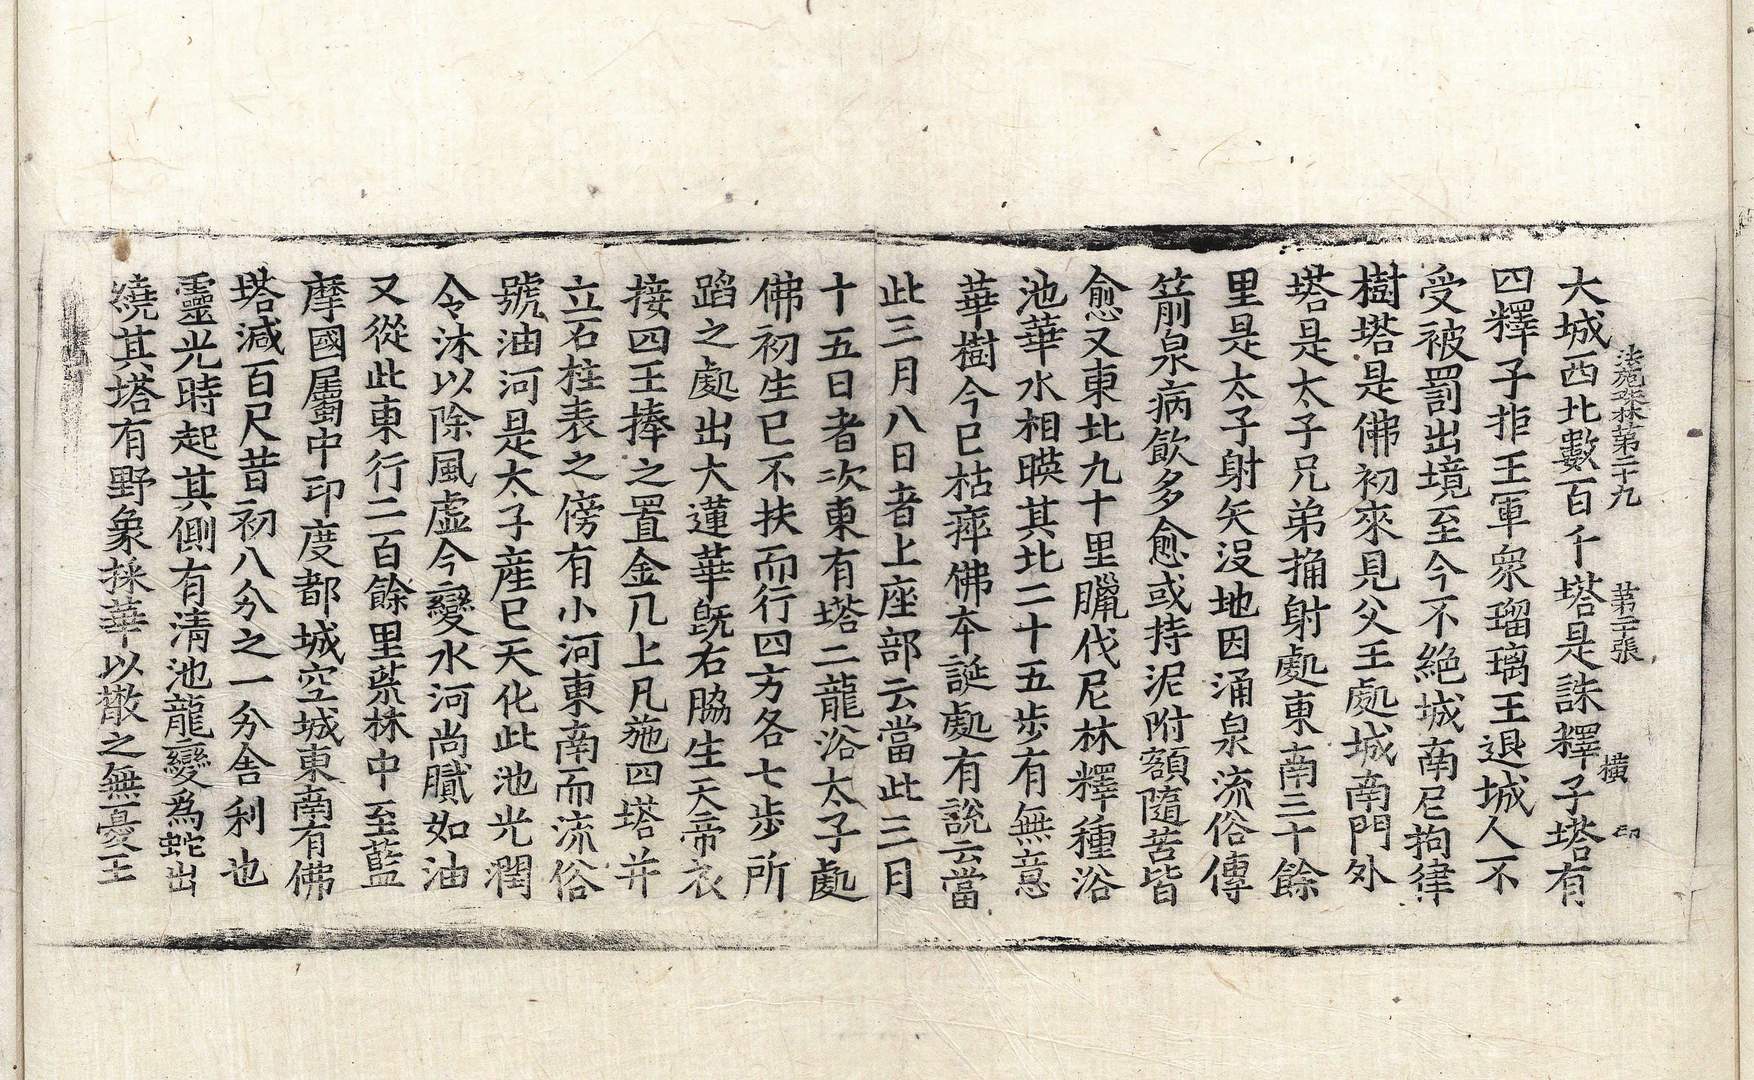 法苑珠林第二十九 第二十張 橫
大城西北數百千塔是誅釋子塔有
四釋子拒王軍衆瑠璃王退城人不
受被罰出境至今不絶城南尼拘律
樹塔是佛初來見父王處城南門外
塔是太子兄弟捔射處東南三十餘
里是太子射矢沒地因涌泉流俗傳
箭泉病飲多愈或持泥附額隨苦皆
愈又東北九十里臘伐尼林釋種浴
池華水相暎其北二十五步有無憂
華樹今已枯瘁佛本誕處有說云當
此三月八日者上座部云當此三月
十五日者次東有塔二龍浴太子處
佛初生已不扶而行四方各七步所
蹈之處出大蓮華旣右脇生天帝衣
接四王捧之置金几上凡施四塔并
立石柱表之傍有小河東南而流俗
號油河是太子産已天化此池光潤
令沐以除風虛今變水河尚膩如油
又從此東行二百餘里荒林中至藍
摩國屬中印度都城空城東南有佛
塔減百尺昔初八分之一分舍利也
靈光時起其側有清池龍變爲蛇出
繞其塔有野象採華以散之無憂王